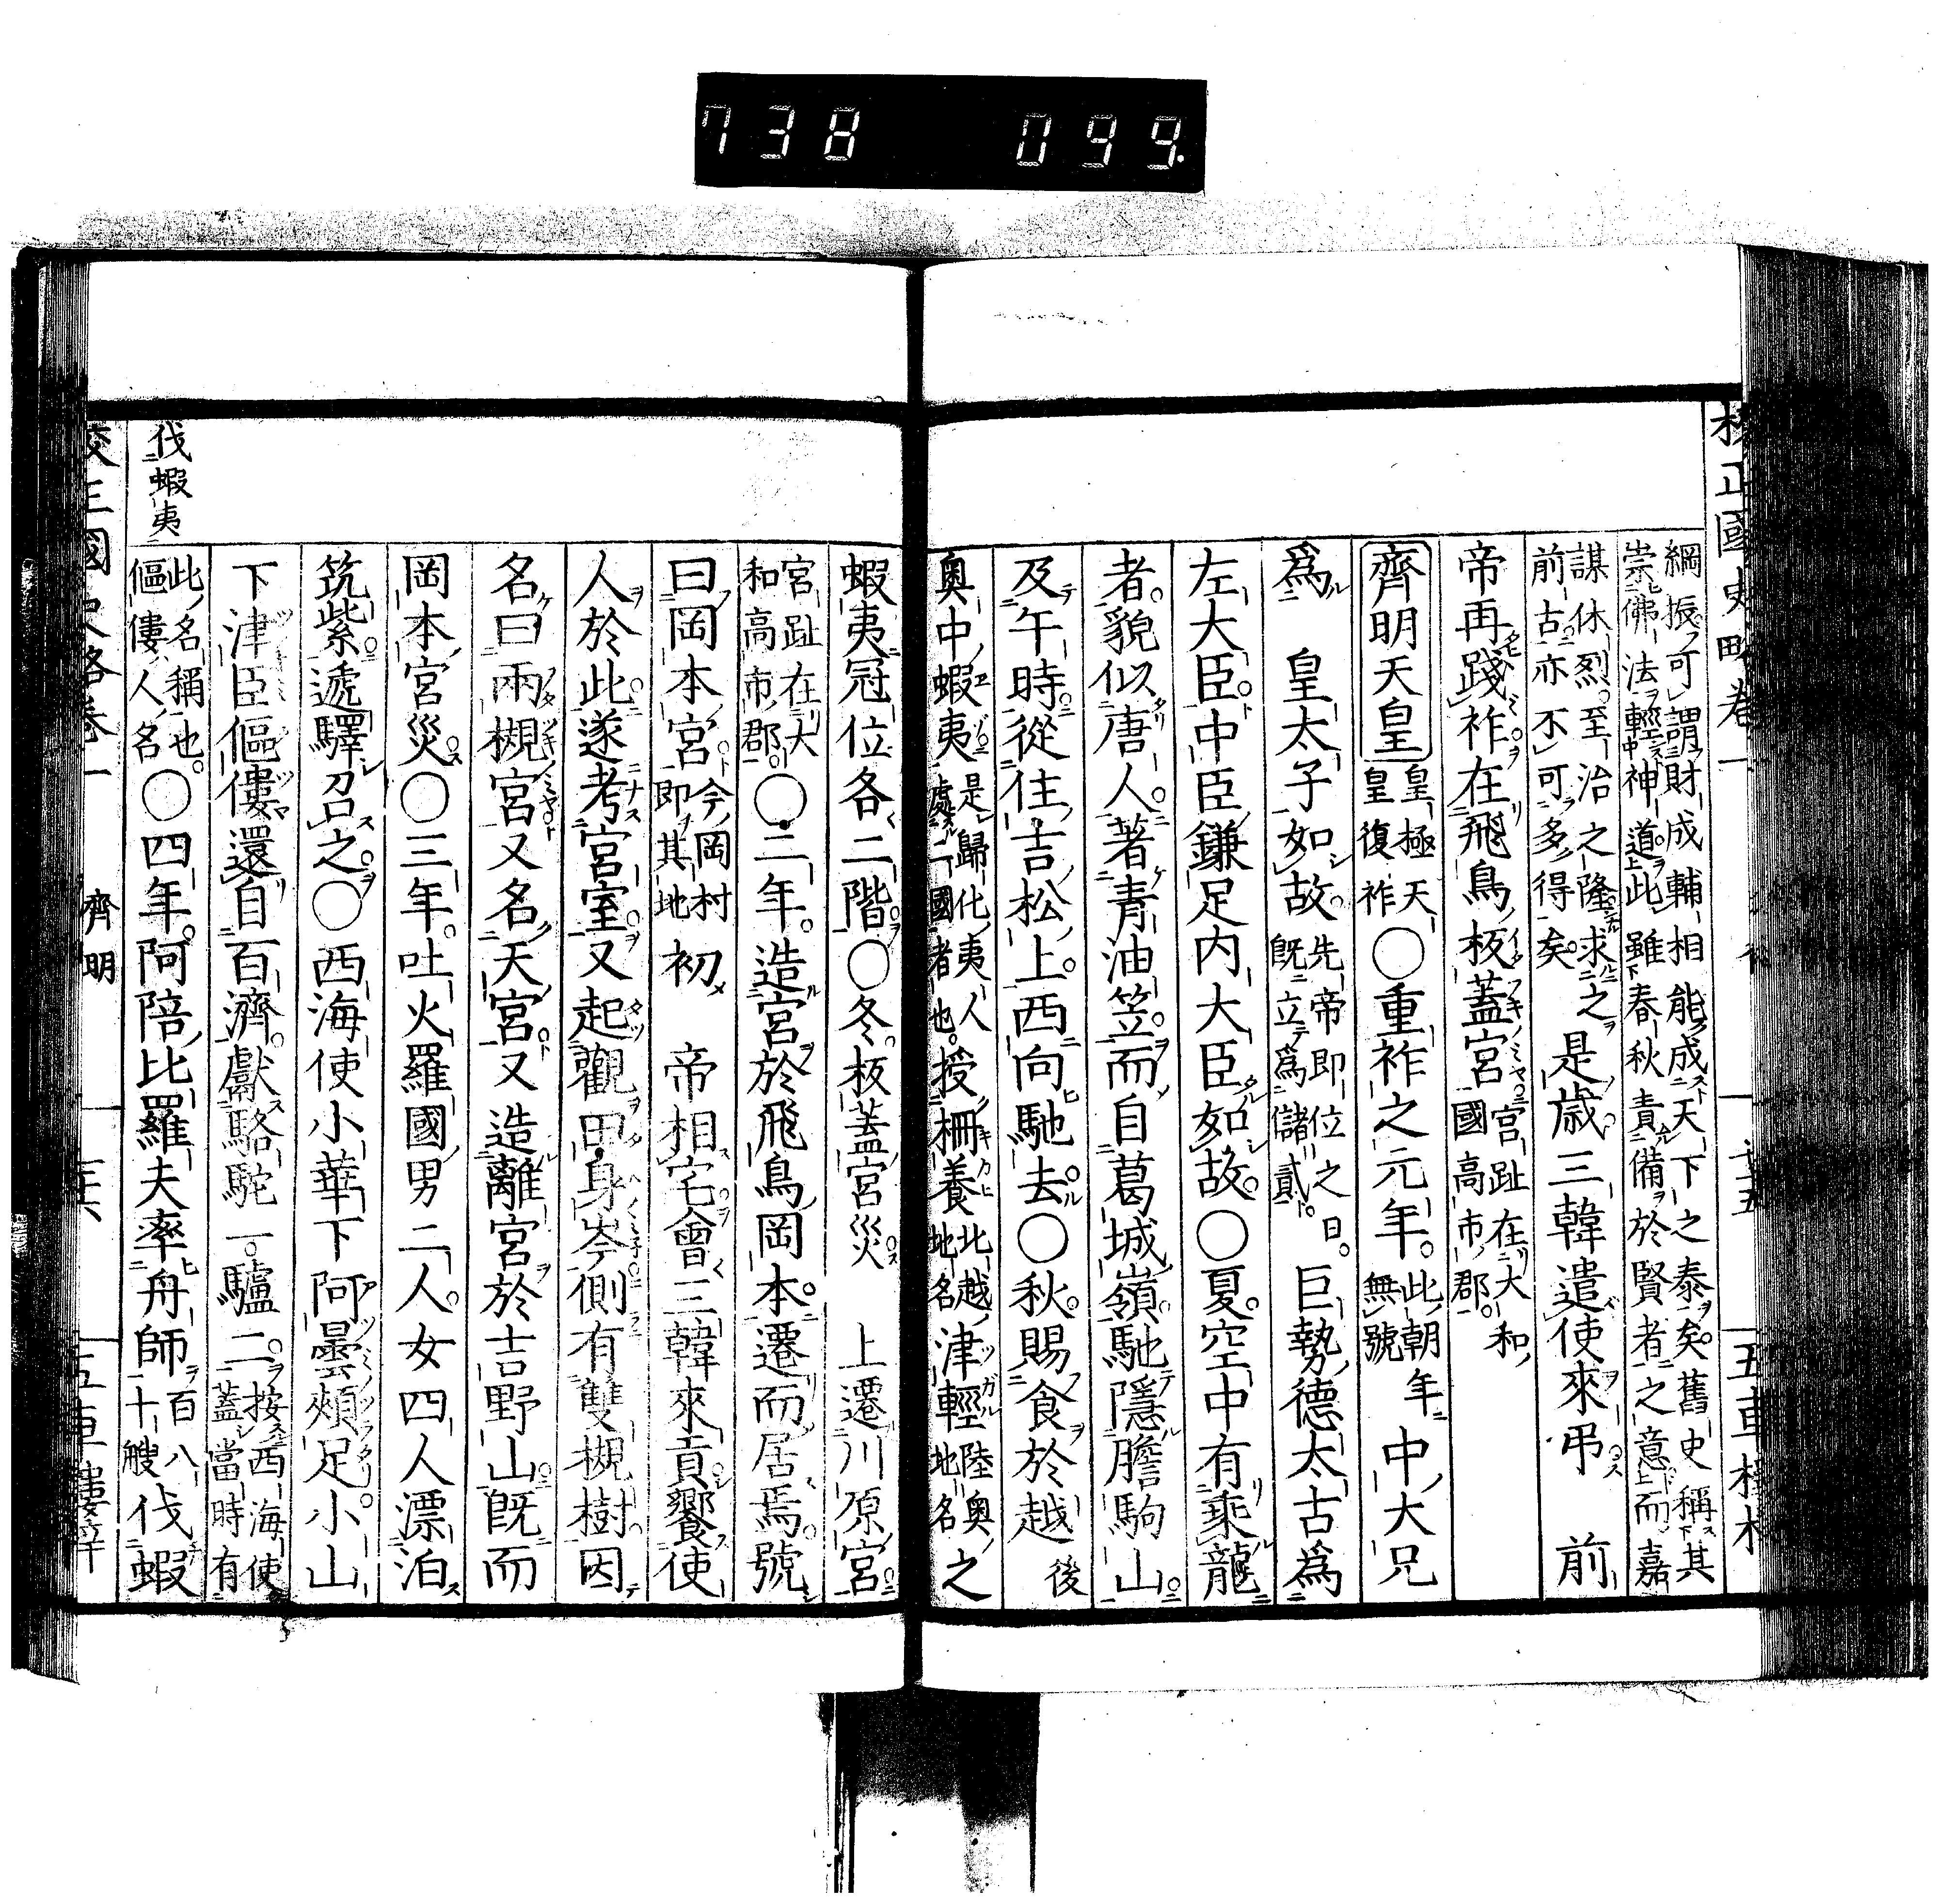 738 099.
校正國史略卷一 五車樓梓
綱振可謂財成輔相能成天下之泰矣舊史稱其
崇佛法輕神道此雖春秋責備於賢者之意而嘉
謀休烈至治之隆求之
前古亦不可多得矣 是歲三韓遣使來弔 前
帝再踐祚在飛鳥板蓋宮宮趾在大和
國高市郡
齊明天皇皇極天
皇復祚〇重祚之元年此朝年
無號 中大兄
爲 皇太子如故先帝即位之日
既立爲儲貳 巨勢德太古爲
左大臣中臣鎌足内大臣如故〇夏空中有乘龍
者貌似唐人著青油笠而自葛城嶺馳隱膽駒山
及午時從住吉松上西向馳去〇秋賜食於越後
奥中蝦夷是歸化夷人
處國者也授柵養北越
地名津輕陸奥
地名之
蝦夷冠位各二階〇冬板蓋宮災 上遷川原宮
宮趾在大
和高市郡〇二年造宮於飛鳥岡本遷而居焉號
曰岡本宮今岡村
即其地初 帝相宅會三韓來貢饗使
人於此遂考宮室又起觀田身岑側有雙槻樹因
名曰兩槻宮又名天宮又造離宮於吉野山既而
岡本宮災〇三年吐火羅國男二人女四人漂泊
筑紫遞驛召之〇西海使小華下阿曇頰足小山
下津臣傴僂還自百濟獻駱駝一驢二按西海使
蓋當時有
此名稱也
傴僂人名〇四年阿陪比羅夫率舟師百八
十艘伐蝦
伐蝦夷
校正國史略卷一 齊明 五車樓梓